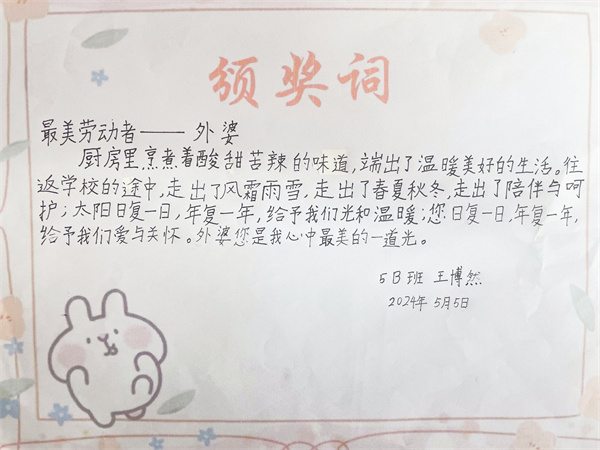 颁奖词
最美劳动者——外婆
厨房里烹煮着酸甜苦辣的味道,端出了温暖美好的生活。往
返学校的途中,走出了风霜雨雪,走出了春夏秋冬,走出了陪伴与呵
护;太阳日复一日,年复一年,给予我们光和温暖;您日复一日,年复一年,
给予我们爱与关怀。外婆您是我心中最美的一道光。
5B班 王博然
2024年5月5日